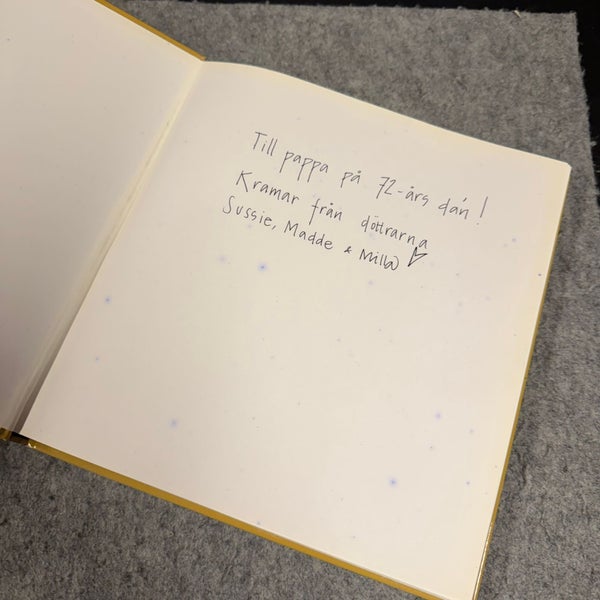 Till pappa på 72-års dan!
Kramar från döttrarna
Sussie, Madde & Milla